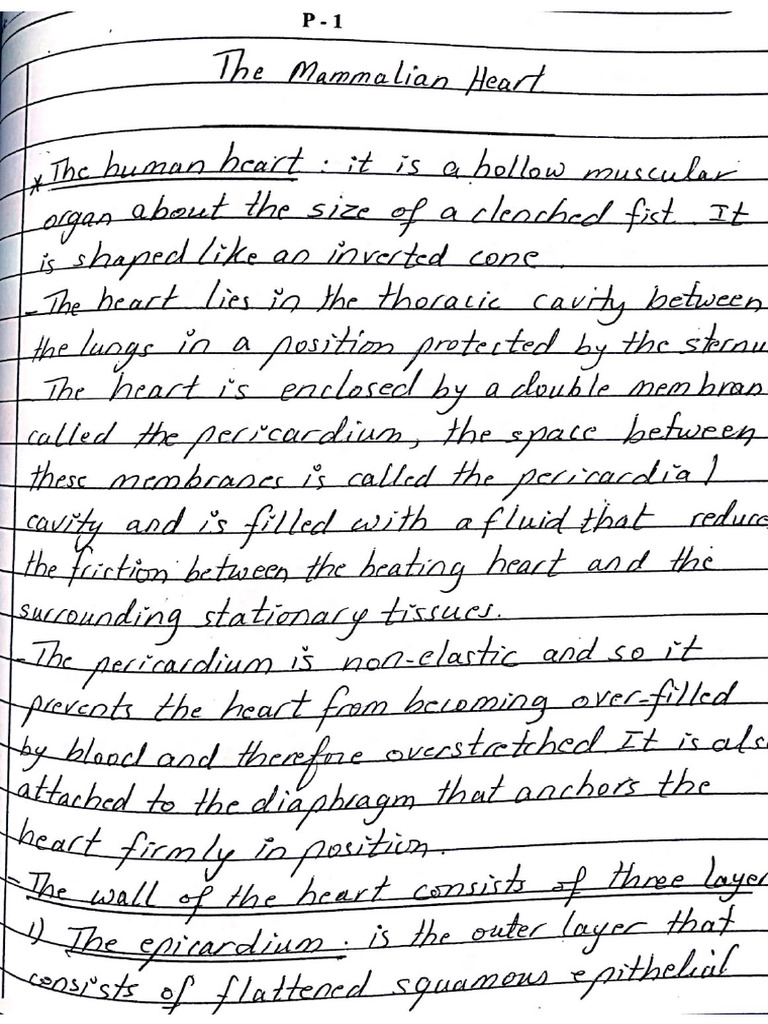 P-1
The Mammalian Heart
* The human heart : it is a hollow muscular
organ about the size of a clenched fist. It
is shaped like an inverted cone.
- The heart lies in the thoracic cavity between
the lungs in a position protected by the sternu
The heart is enclosed by a double membran
called the pericardium, the space between
these membranes is called the pericardial
cavity and is filled with a fluid that reduce
the friction between the beating heart and the
surrounding stationary tissues.
- The pericardium is non-elastic and so it
prevents the heart from becoming over-filled
by blood and therefore overstretched It is als
attached to the diaphragm that anchors the
heart firmly in position.
- The wall of the heart consists of three layer
1) The epicardium : is the outer layer that
consists of flattened squamous epithelial